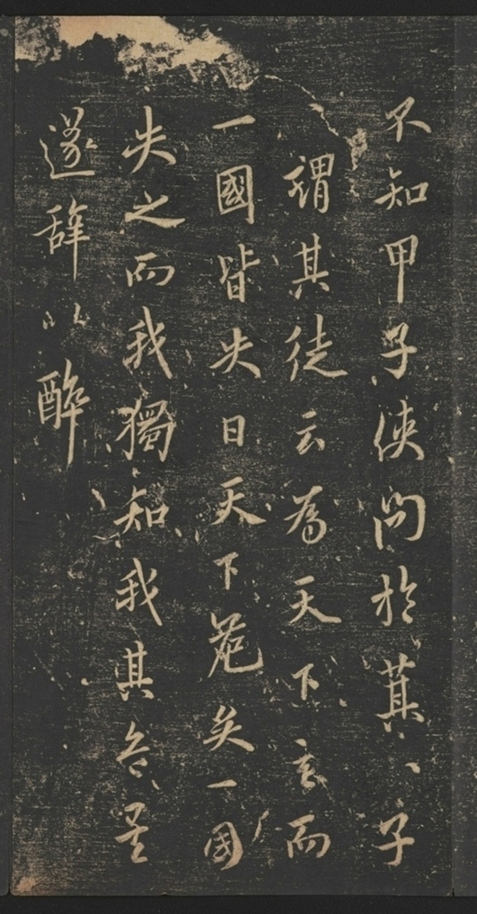 不知甲子使問於萁〻子
謂其徒云為天下主而
一國皆失日天下危矣一国
失之而我獨知我其危矣
遂辞以醉